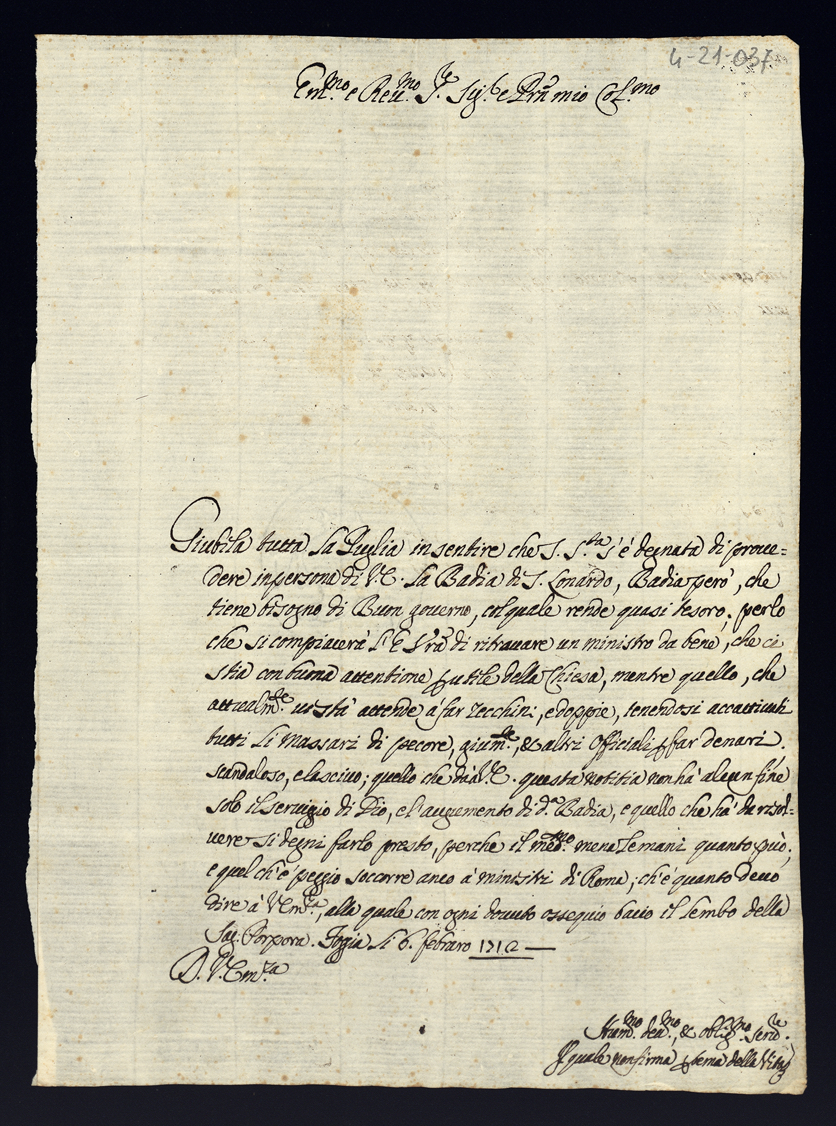 4-21-037
Em.mo e Reu.mo S.re Sig.r e Prñ mio Col.mo
Giubila tutta la Puglia in sentire che S. S.ta s'è degnata di proue=
dere in persona di V.E. la Badia di S. Lonardo, Badia però, che
tiene bisogno di Buon gouerno, col quale rende quasi tesoro; perlo
che si compiacerà l'E Vrã di ritrauare un ministro da bene, che ci
stia con buona attentione, p utile della Chiesa, mentre quello, che
attualm.te vi stà attende à far Zecchini, e doppie, tenendosi accattiuati
tutti li Massari di pecore, gium.te, & altri Officiali p far denari.
scandaloso, e lasciuo; quello che dà à V.E. questa notitia non hà alcun fine
solo il seruigio di Dio, e l'augumento di d.a Badia, e quello che hà da risol=
uere si degni farlo presto, perche il med.mo mena le mani quanto può;
e quel ch'è peggio soccorre anco à ministri di Roma; ch'è quanto deuo
dire à V.Em.za, alla quale con ogni douuto ossequio bacio il lembo della
Sag. Porpora. Fogia li 6. febraro 1712
D. V. Em.za
Hum.mo deu.mo, & oblig.mo ser.re
Il quale non firma p tema della Vita